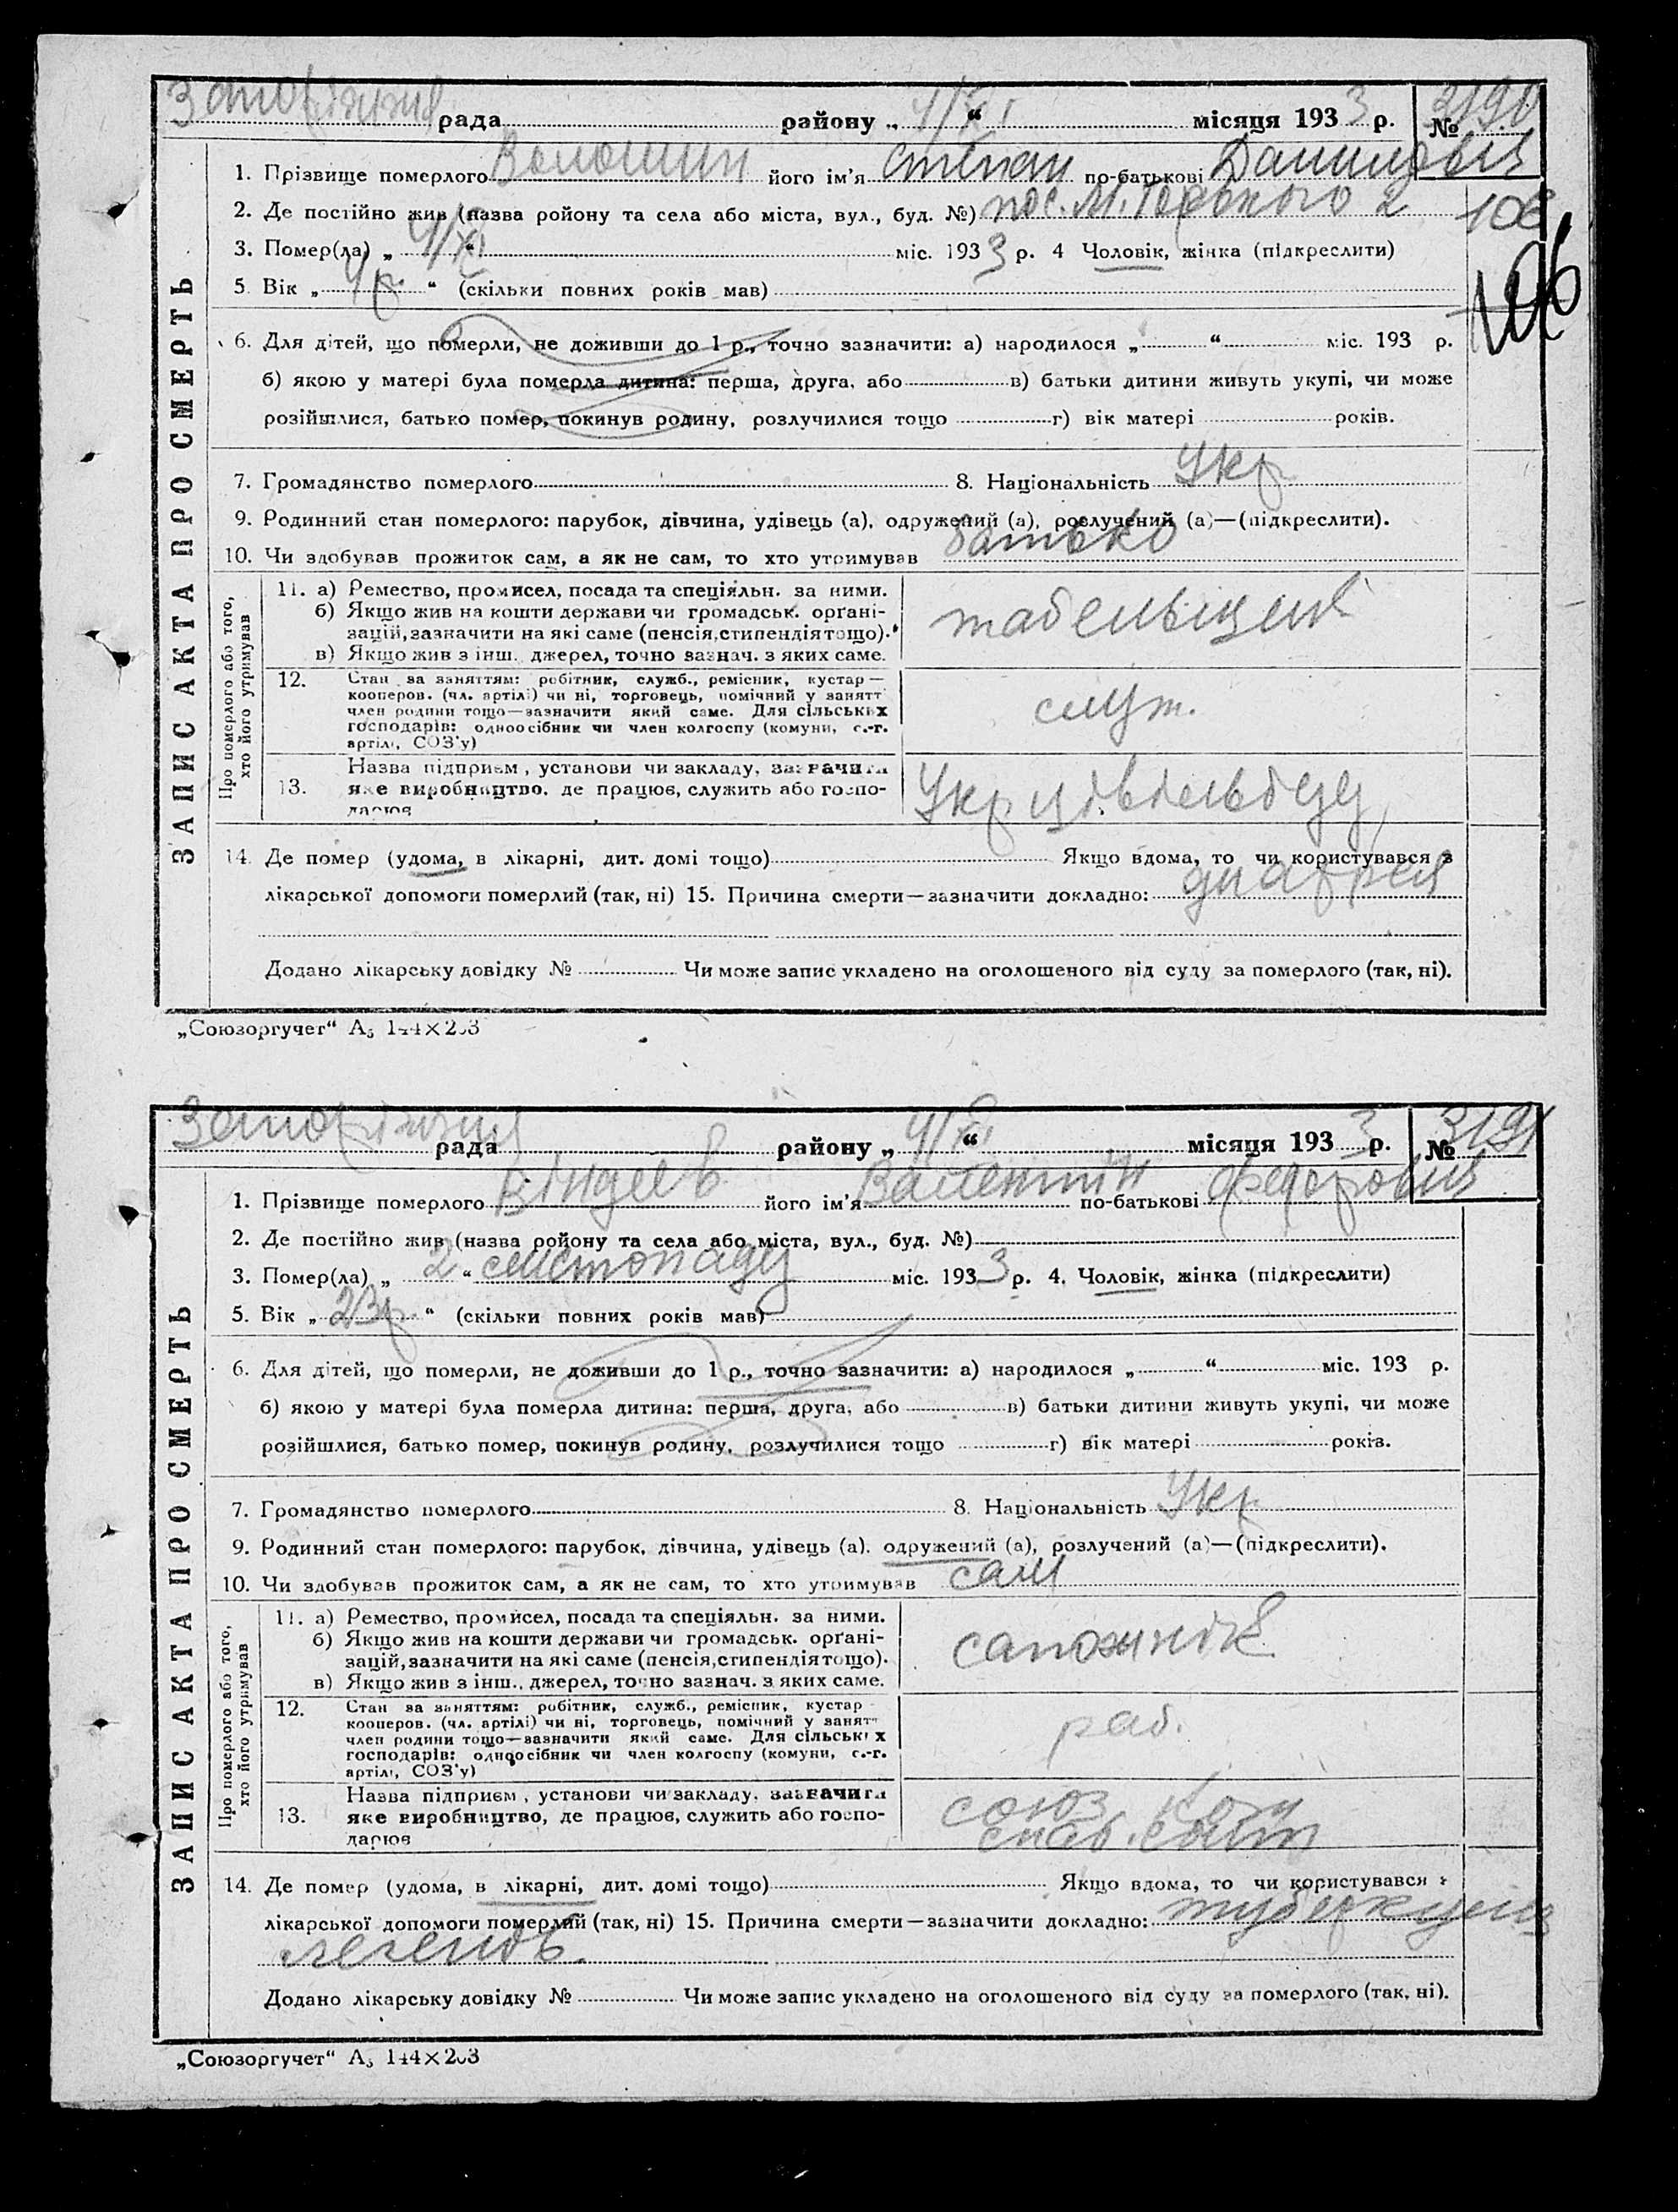 Запоріжжя рада района „ 4/XI “ місяця 1933 р. № 3190
1. Прізвище померлого Волошин його ім'я Степан по-батькові Данилович
2. Де постійно жив (назва ройону та села або міста, вул., буд. №) пос. М. Горького 2
106
3. Помер(ла) „ 4/XI “ міс. 1933 р. 4 Чоловік, жінка (підкреслити)
5. Вік „ 4 р. “ (скільки повних років мав)
6. Для дітей, що померли, не доживши до 1 р., точно зазначити: а) народилося „ “ міс. 193 р.
б) якою у матері була померла дитина: перша, друга, або в) батьки дитини живуть укупі, чи може
розійшлися, батько помер, покинув родину, розлучилися тощо г) вік матері років.
7. Громадянство померлого 8. Національність Укр
9. Родинний стан померлого: парубок, дівчина, удівець (а), одружений (а), розлучений (а)—(підкреслити).
10. Чи здобував прожиток сам, а як не сам, то хто утримував батько
ЗАПИС АКТА ПРО СМЕРТЬ
Про померлого або того, хто його утримував
11. а) Ремество, промисел, посада та спеціяльн. за ними.
б) Якщо жив на кошти держави чи громадськ. орґані-
зацій, зазначити на які саме (пенсія, стипендія тощо).
в) Якщо жив з інш. джерел, точно зазнач. з яких саме.
табельщик
12. Стан за заняттям: робітник, служб., ремісник, кустар—
кооперов. (чл. артілі) чи ні, торговець, помічний у занятт
член родини тощо—зазначити який саме. Для сільських
господарів: одноосібник чи член колгоспу (комуни, с.-г.
артілі, СОЗ'у)
служ.
13. Назва підприєм, установи чи закладу, зазначити
яке виробництво, де працює, служить або госпо-
дарює
14. Де помер (удома, в лікарні, дит. домі тощо) Якщо вдома, то чи користувався з
лікарської допомоги померлий (так, ні) 15. Причина смерти—зазначити докладно: диаррея
Додано лікарську довідку № Чи може запис укладено на оголошеного від суду за померлого (так, ні).
„Союзоргучет“ А₅ 144×203
Запоріжжя рада району „ 4/XI “ місяця 1933 р. № 3191
1. Прізвище померлого його ім'я Валентин по-батькові Федорович
2. Де постійно жив (назва ройону та села або міста, вул., буд. №)
3. Помер(ла) „ 2 “ листопаду міс. 1933 р. 4. Чоловік, жінка (підкреслити)
5. Вік „ 23 р. “ (скільки повних років мав)
6. Для дітей, що померли, не доживши до 1 р., точно зазначити: а) народилося „ “ міс. 193 р.
б) якою у матері була померла дитина: перша, друга, або в) батьки дитини живуть укупі, чи може
розійшлися, батько помер, покинув родину, розлучилися тощо г) вік матері років.
7. Громадянство померлого 8. Національність Укр
9. Родинний стан померлого: парубок, дівчина, удівець (а), одружений (а), розлучений (а)—(підкреслити).
10. Чи здобував прожиток сам, а як не сам, то хто утримував сам
ЗАПИС АКТА ПРО СМЕРТЬ
Про померлого або того, хто його утримував
11. а) Ремество, промисел, посада та спеціяльн. за ними.
б) Якщо жив на кошти держави чи громадськ. орґані-
зацій, зазначити на які саме (пенсія, стипендія тощо).
в) Якщо жив з інш., джерел, точно зазнач. з яких саме.
сапожнік
12. Стан за заняттям: робітник, служб., ремісник, кустар
кооперов. (чл. артілі) чи ні, торговець, помічний у занятт
член родини тощо—зазначити який саме. Для сільських
господарів: одноосібник чи член колгоспу (комуни, с.-г.
артілі, СОЗ'у)
раб.
13. Назва підприєм, установи чи закладу, зазначити
яке виробництво, де працює, служить або госпо-
дарює
союз
14. Де помер (удома, в лікарні, дит. домі тощо) Якщо вдома, то чи користувався з
лікарської допомоги померлий (так, ні) 15. Причина смерти—зазначити докладно: туберкульоз
легень.
Додано лікарську довідку № Чи може запис укладено на оголошеного від суду за померлого (так, ні).
„Союзоргучет“ А₅ 144×203